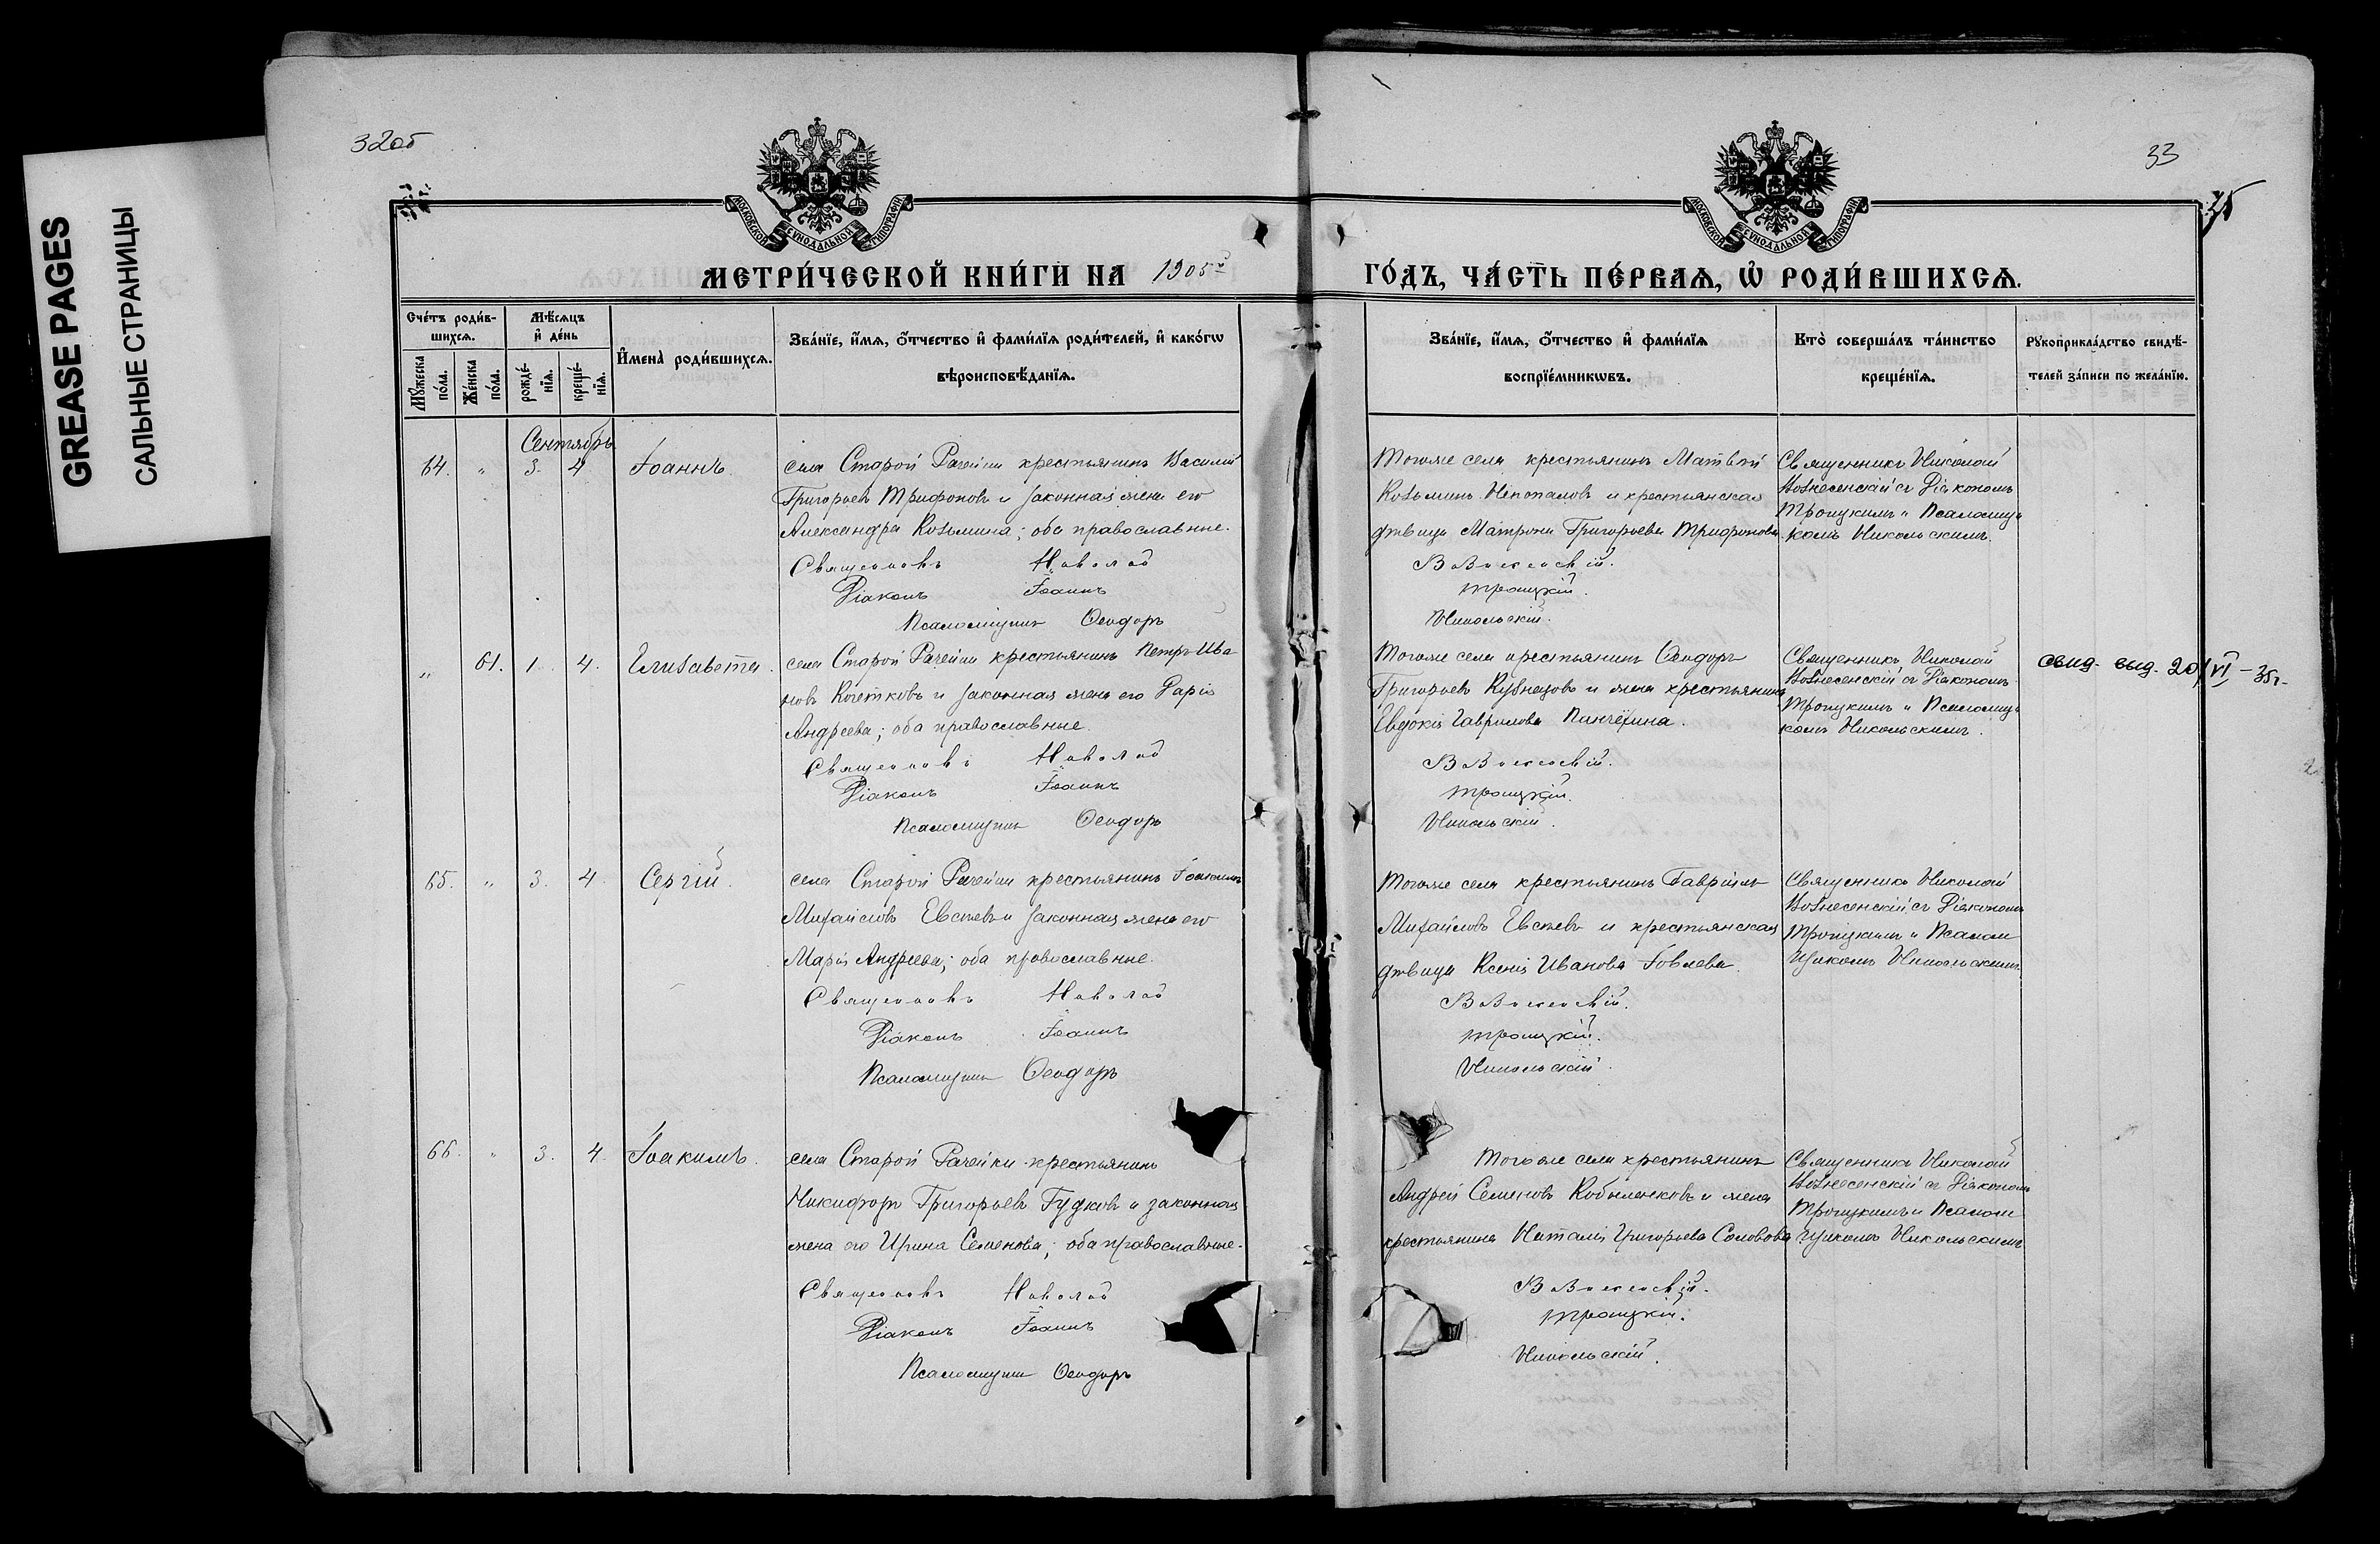 GREASE PAGES
САЛЬНЫЕ СТРАНИЦЫ
32об
33
МОСКОВСКОЙ СУНОДАЛЬНОЙ ТИПОГРАФІИ
МОСКОВСКОЙ СУНОДАЛЬНОЙ ТИПОГРАФІИ
МЕТРИ́ЧЕСКОЙ КНИ́ГИ НА 1905й ГО́ДЪ, ЧА́СТЬ ПЕ́РВАѦ, Ѡ҆ РОДИ́ВШИХСѦ.
Сче́тъ роди́в-
шихсѧ.
Мꙋ́жеска по́ла.
Же́нска по́ла.
Мѣ́сѧцъ
и҆ де́нь
рожде́-
нїѧ.
креще́-
нїѧ.
И҆мена̀ роди́вшихсѧ.
Зва́нїе, и҆́мѧ, ѻ҆́тчество и҆ фами́лїѧ роди́телей, и҆ како́гѡ
вѣроисповѣ́данїѧ.
Зва́нїе, и҆́мѧ, ѻ҆́тчество и҆ фами́лїѧ
воспрїе́мникѡвъ.
Кто̀ соверша́лъ та́инство
креще́нїѧ.
Рꙋкоприкла́дство свидѣ́-
телей за́писи по жела́нїю.
Сентябрь
64. " 3. 4. Іоаннъ.
села Старой Рачейки крестьянинъ Василий
Григорьевъ Трифоновъ и законная жена его
Александра Козьмина; оба православные.
Священникъ Николай
Діаконъ Іоаннъ
Псаломщикъ Ѳеодоръ
Тогоже села крестьянинъ Матвѣй
Козьминъ и крестьянская
дѣвица Матрона Григорьева Трифонова.
Вознесенскій.
Троицкій.
Никольскій.
Священникъ Николай
Вознесенскій съ Діакономъ
Троицкимъ и Псаломщи-
комъ Никольскимъ.
" 61. 1. 4. Елизавета.
села Старой Рачейки крестьянинъ Петръ Ива-
новъ Кочетковъ и законная жена его Дарія
Андреева; оба православные.
Священникъ Николай
Діаконъ Іоаннъ
Псаломщикъ Ѳеодоръ
Тогоже села крестьянинъ Ѳеодоръ
Григорьевъ Кузнецовъ и жена крестьянина
Евдокія Гаврилова
Вознесенскій.
Троицкій.
Никольскій.
Священникъ Николай
Вознесенскій съ Діакономъ
Троицкимъ и Псаломщи-
комъ Никольскимъ.
свид. выд. 20/VI – 35г.
65. " 3. 4. Сергій.
села Старой Рачейки крестьянинъ
Михайловъ Евсѣевъ и законная жена его
Марія Андреева; оба православные.
Священникъ Николай
Діаконъ Іоаннъ
Псаломщикъ Ѳеодоръ
Тогоже села крестьянинъ Гавріилъ
Михайловъ Евсѣевъ и крестьянская
дѣвица Ксенія Иванова
Вознесенскій.
Троицкій.
Никольскій.
Священникъ Николай
Вознесенскій съ Діакономъ
Троицкимъ и Псалом
щикомъ Никольскимъ.
66. " 3. 4. Іоакимъ.
села Старой Рачейки крестьянинъ
Никифоръ Григорьевъ Гудковъ и законная
жена его Ирина Семенова; оба православные.
Священникъ Николай
Діаконъ Іоаннъ
Псаломщикъ Ѳеодоръ
Тогоже села крестьянинъ
Андрей Семеновъ Кобыленковъ и жена
крестьянина Наталія Григорьева Соловова
Вознесенскій.
Троицкій.
Никольскій.
Священникъ Николай
Вознесенскій съ Діакономъ
Троицкимъ и Псалом
щикомъ Никольскимъ